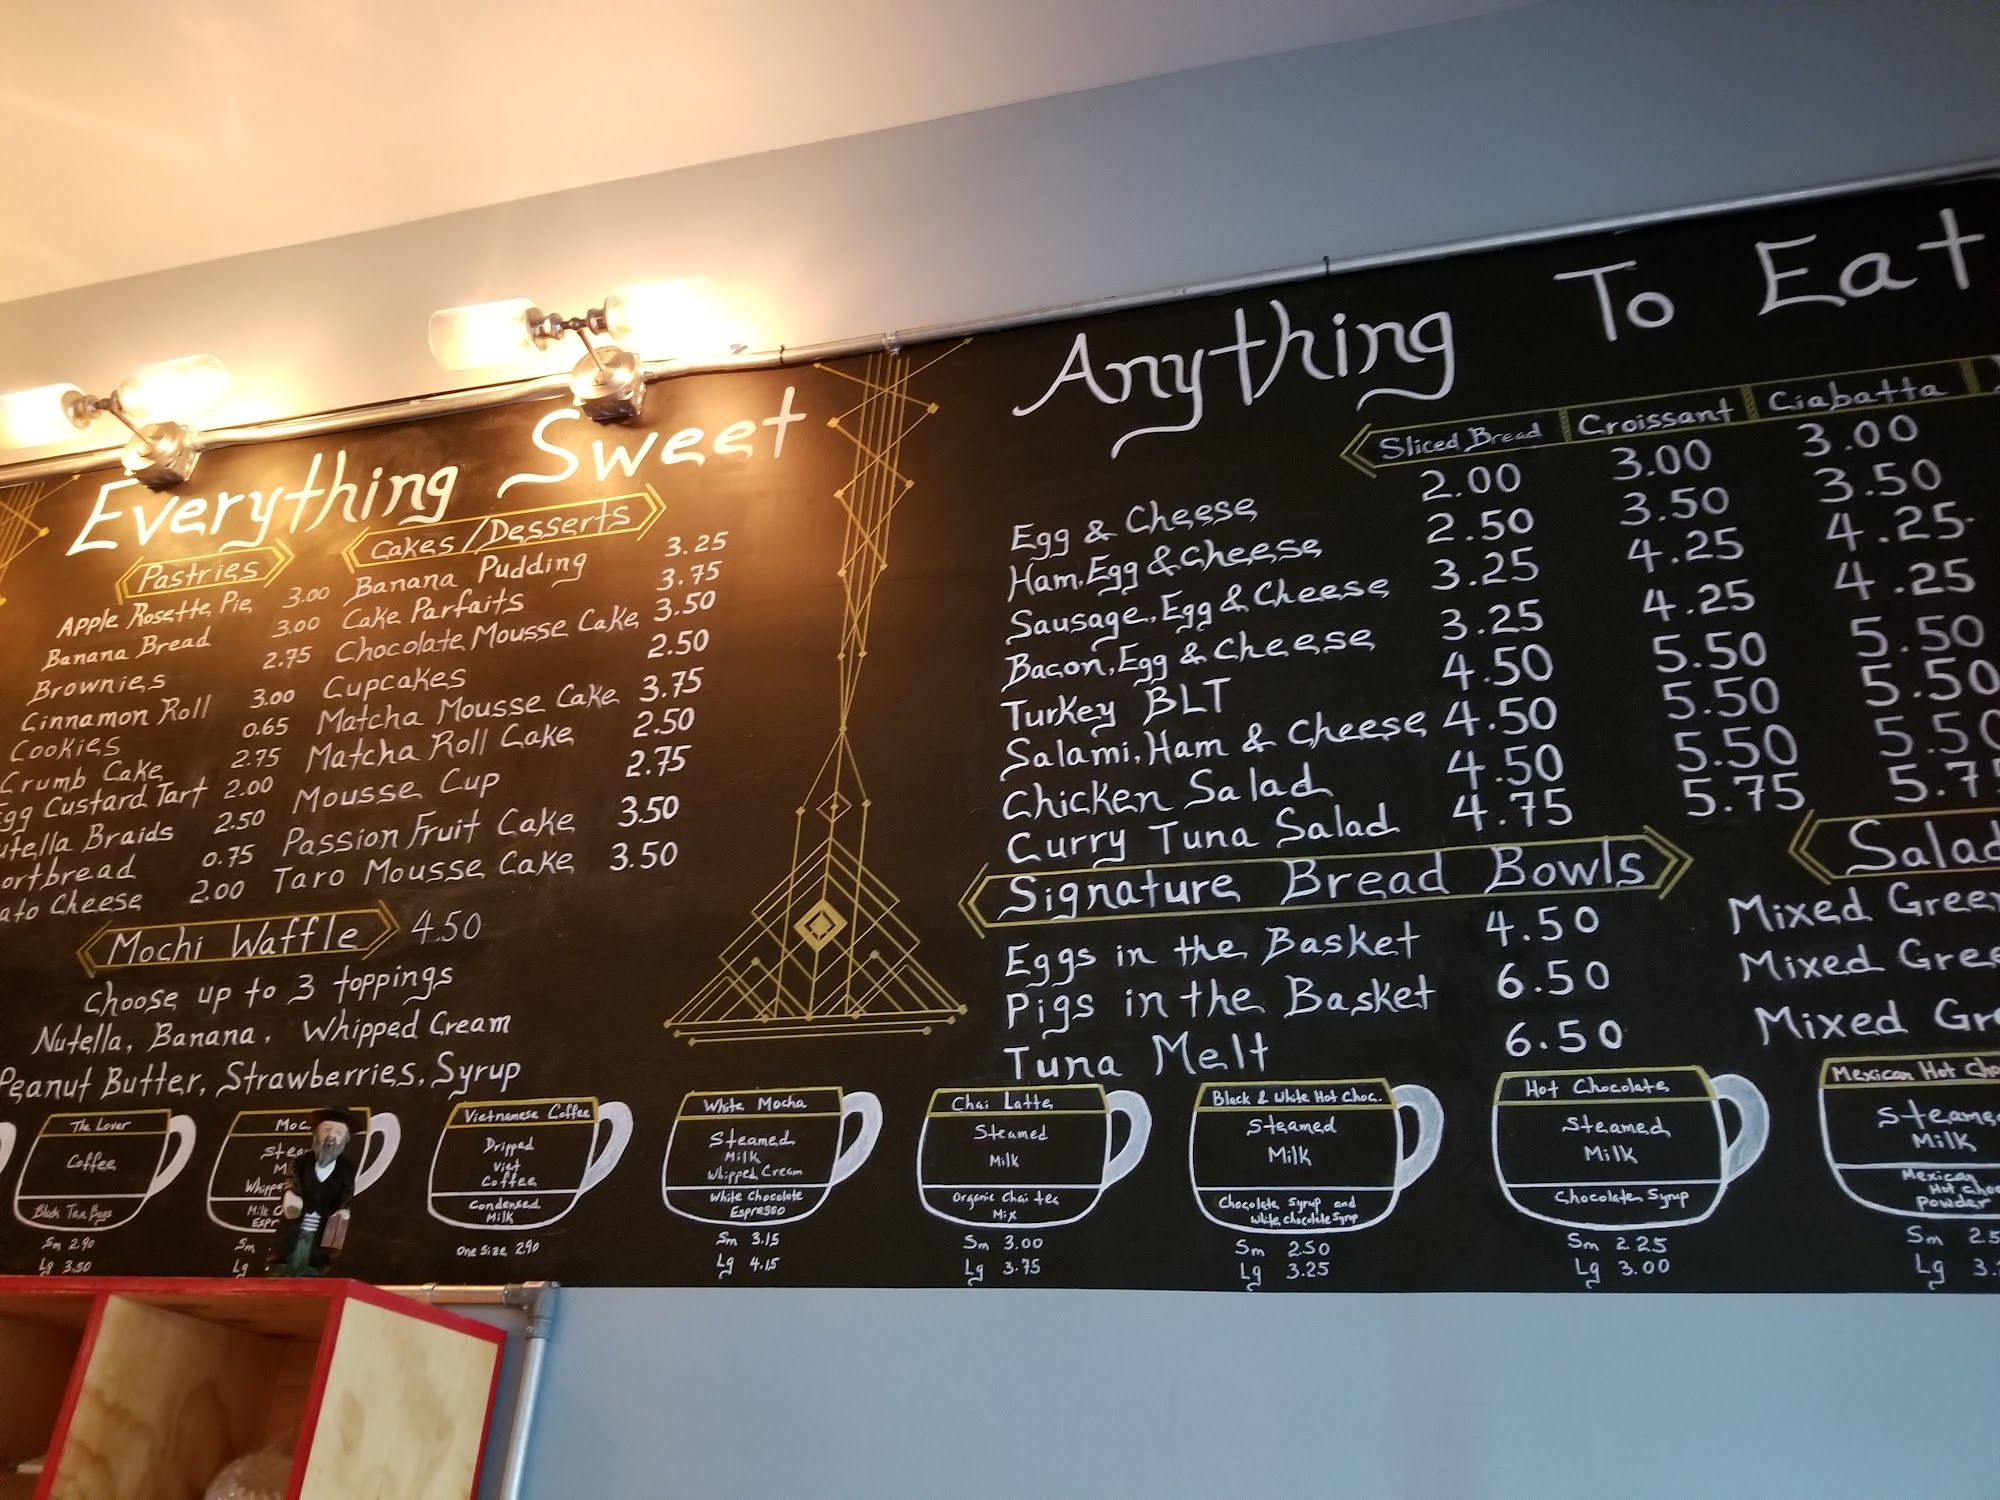 Everything Sweet
Pastries
Apple Rosette Pie 3.00
Banana Bread 3.00
Brownies 2.75
Cinnamon Roll 3.00
Cookies 0.65
Crumb Cake 2.75
Egg Custard Tart 2.00
utella Braids 2.50
ortbread 0.75
ato Cheese 2.00
Cakes/Desserts
Banana Pudding 3.25
Cake Parfaits 3.75
Chocolate Mousse Cake 3.50
Cupcakes 2.50
Matcha Mousse Cake 3.75
Matcha Roll Cake 2.50
Mousse Cup 2.75
Passion Fruit Cake 3.50
Taro Mousse Cake 3.50
Mochi Waffle 4.50
Choose up to 3 toppings
Nutella, Banana, Whipped Cream
Peanut Butter, Strawberries, Syrup
Anything To Eat
Sliced Bread Croissant Ciabatta
Egg & Cheese 2.00 3.00 3.00
Ham, Egg & Cheese 2.50 3.50 3.50
Sausage, Egg & Cheese 3.25 4.25 4.25
Bacon, Egg & Cheese 3.25 4.25 4.25
Turkey BLT 4.50 5.50 5.50
Salami, Ham & Cheese 4.50 5.50 5.50
Chicken Salad 4.50 5.50 5.50
Curry Tuna Salad 4.75 5.75 5.7
Signature Bread Bowls
Eggs in the Basket 4.50
Pigs in the Basket 6.50
Tuna Melt 6.50
Salad
Mixed Green
Mixed Gree
Mixed Gre
The Lover
Coffee
Black Tea Bags
Sm 2.90
Lg 3.50
Moc
Stea
M
Whippe
Milk C
Espr
Sm
Lg
Vietnamese Coffee
Dripped
Viet
Coffee
Condensed
Milk
One Size 2.90
White Mocha
Steamed
Milk
Whipped Cream
White Chocolate
Espresso
Sm 3.15
Lg 4.15
Chai Latte
Steamed
Milk
Organic Chai tea
Mix
Sm 3.00
Lg 3.75
Black & White Hot Choc.
Steamed
Milk
Chocolate Syrup and
White chocolate Syrup
Sm 2.50
Lg 3.25
Hot Chocolate
Steamed
Milk
Chocolate Syrup
Sm 2.25
Lg 3.00
Mexican Hot Cho
Steame
Milk
Mexican
Hot Choc
Powder
Sm 2.5
Lg 3.